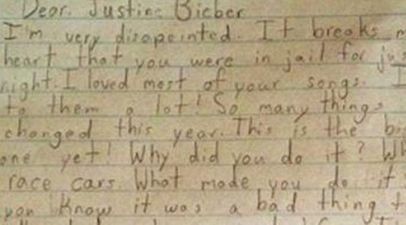 Dear. Justine Bieber
I'm very disapointed. It breaks m
heart that you were in jail for jus
night. I loved most of your songs. I
to them a lot! So many things
changed this year. This is the b
one yet! Why did you do it? Wh
race cars. What made you do it
you know it was a bad thing t